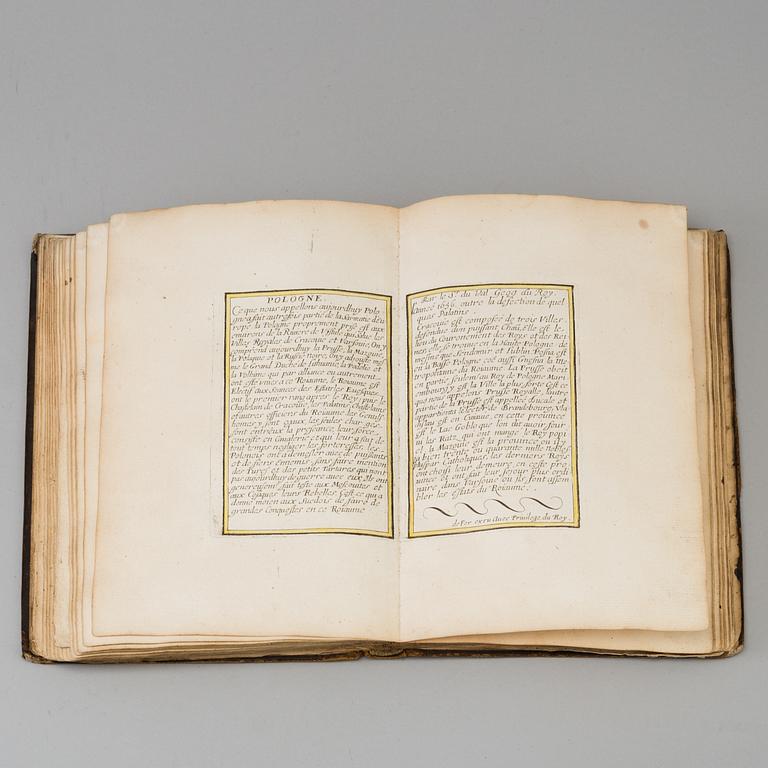 POLOGNE.
Ce que nous appellons aujourdhuy Polo
gne a fait autrefois partie de la Sarmatie d'eu
rope la Pologne proprement prise est aux
environs de la Riviere de Vistule qui
Villes Royales de Cracovie et Varsovie. On y
comprend aujourdhuy la Prusse, la Mazovie,
la Polaquie et la Russie noire, On y adjouste mes
me le Grand Duché de Lithuanie, la Polesie et
la Volhinie qui par alliance ou autrement
ont este vnies a ce Roiaume, le Roiaume est
Electif aux Seances des Estats les Euesques
ont le premier rang apres le Roy; puis le
Chastelain de Cracovie, les Palatins, Chastelains
et autres officiers du Roiaume les Gentils
homes y sont egaux, les seules charges
font entreux la preseance, leur force
consiste en Caualerie et qui leur a fait de
tout temps negliger les forteresses, les
Polonois ont a demesler avec de puissants
et de fiers ennemis, sans faire mention
des Turcs et des petits Tartares qui nont
pas aujourdhuy de guerre avec eux, Ils ont
genereusemt fait teste aux Moscovites et
aux Cosaques leurs Rebelles C'est ce qui a
donné moien aux Suedois de faire de
grandes Conquestes en ce Roiaume
Par le Sr. du Val Geog. du Roy.
1656, outre la défection de quel
ques Palatins.
Cracovie est composée de trois Villes
defendue dun puissant Chau, Elle est le
lieu du Couronement des Roys et des Rei
nes, elle se trouue en la Haute Pologne de
mesme que Sendomir et Lublin, Posna est
en la Basse Pologne coē aussi Gnesna la Me
tropolitaine du Roiaume. La Prusse obeit
en partie seulemt au Roy de Pologne Mari
embourg y est la Ville la plus forte C'est ce
que nous appelons Prusse Royalle, lautre
partie de la Prusse est appellée Ducale et
appartient a l'Electeur de Brandebourg, Vla
dislau est en Cuiavie, en cette province
est le Lac Goblo que lon dit avoir four
ni les Ratz qui ont mangé le Roy popi
el, la Mazovie est la province ou il y
a bien trente ou quarante mille nobles
Catholiques les derniers Roys
ont choisi leur demeure en ceste pro
uince et ont fait leur sejour plus ordi
naire dans Varsovie ou ils font assem
bler les estats du Roiaume.
de Fer excu Avec Privilege du Roy.